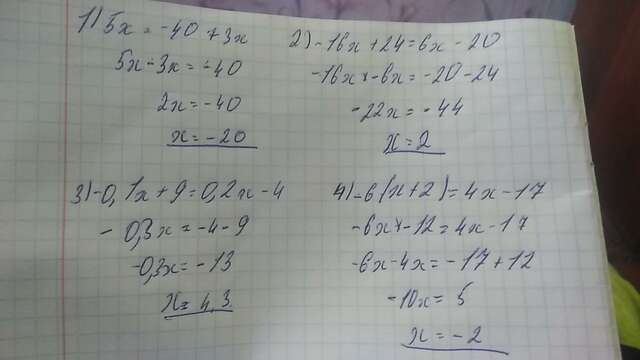 1) 5x = -40 + 3x
5x - 3x = -40
2x = -40
x = -20
2) -16x + 24 = 6x - 20
-16x - 6x = -20 - 24
-22x = -44
x = 2
3) -0,1x + 9 = 0,2x - 4
-0,3x = -4 - 9
-0,3x = -13
x = 4,3
4) -6(x + 2) = 4x - 17
-6x - 12 = 4x - 17
-6x - 4x = -17 + 12
-10x = 5
x = -2